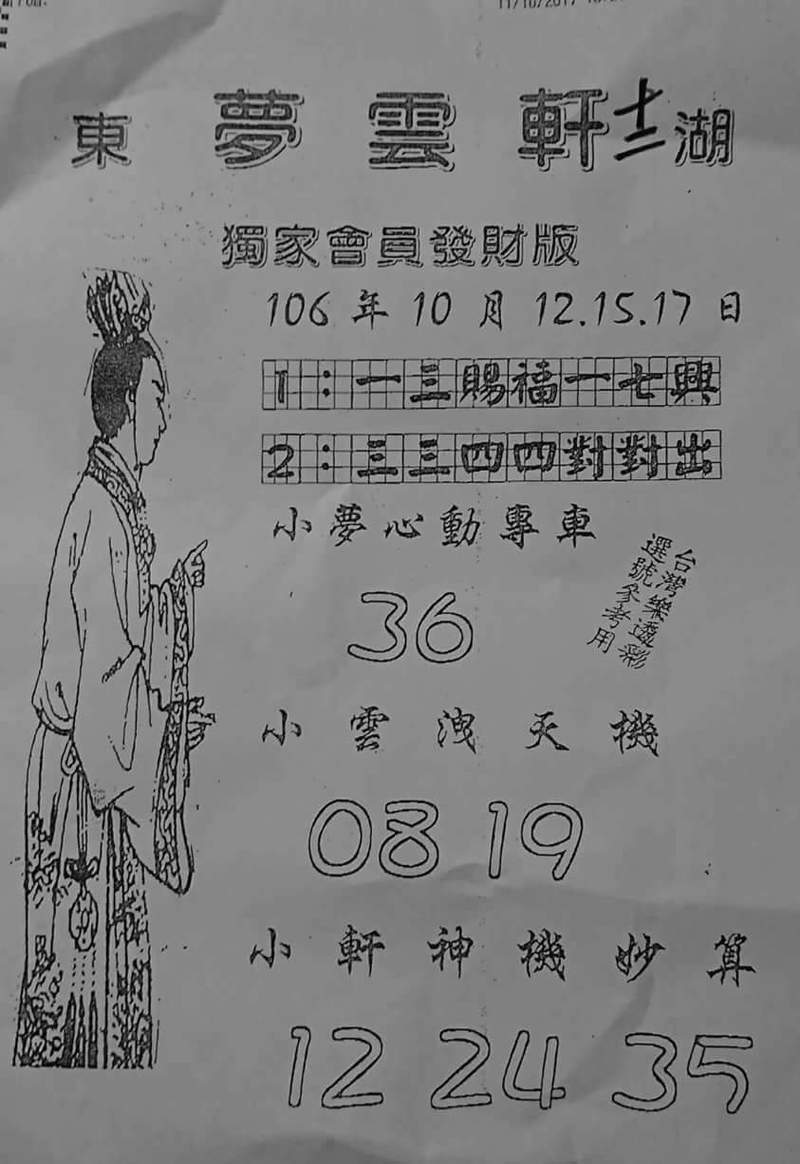 11/10/2017
東 夢 雲 軒 十二 湖
獨家會員發財版
106 年 10 月 12.15.17 日
1：一三賜福一七興
2：三三四四對對出
小夢心動專車
台灣樂透彩
選號參考用
36
小雲洩天機
08 19
小軒神機妙算
12 24 35